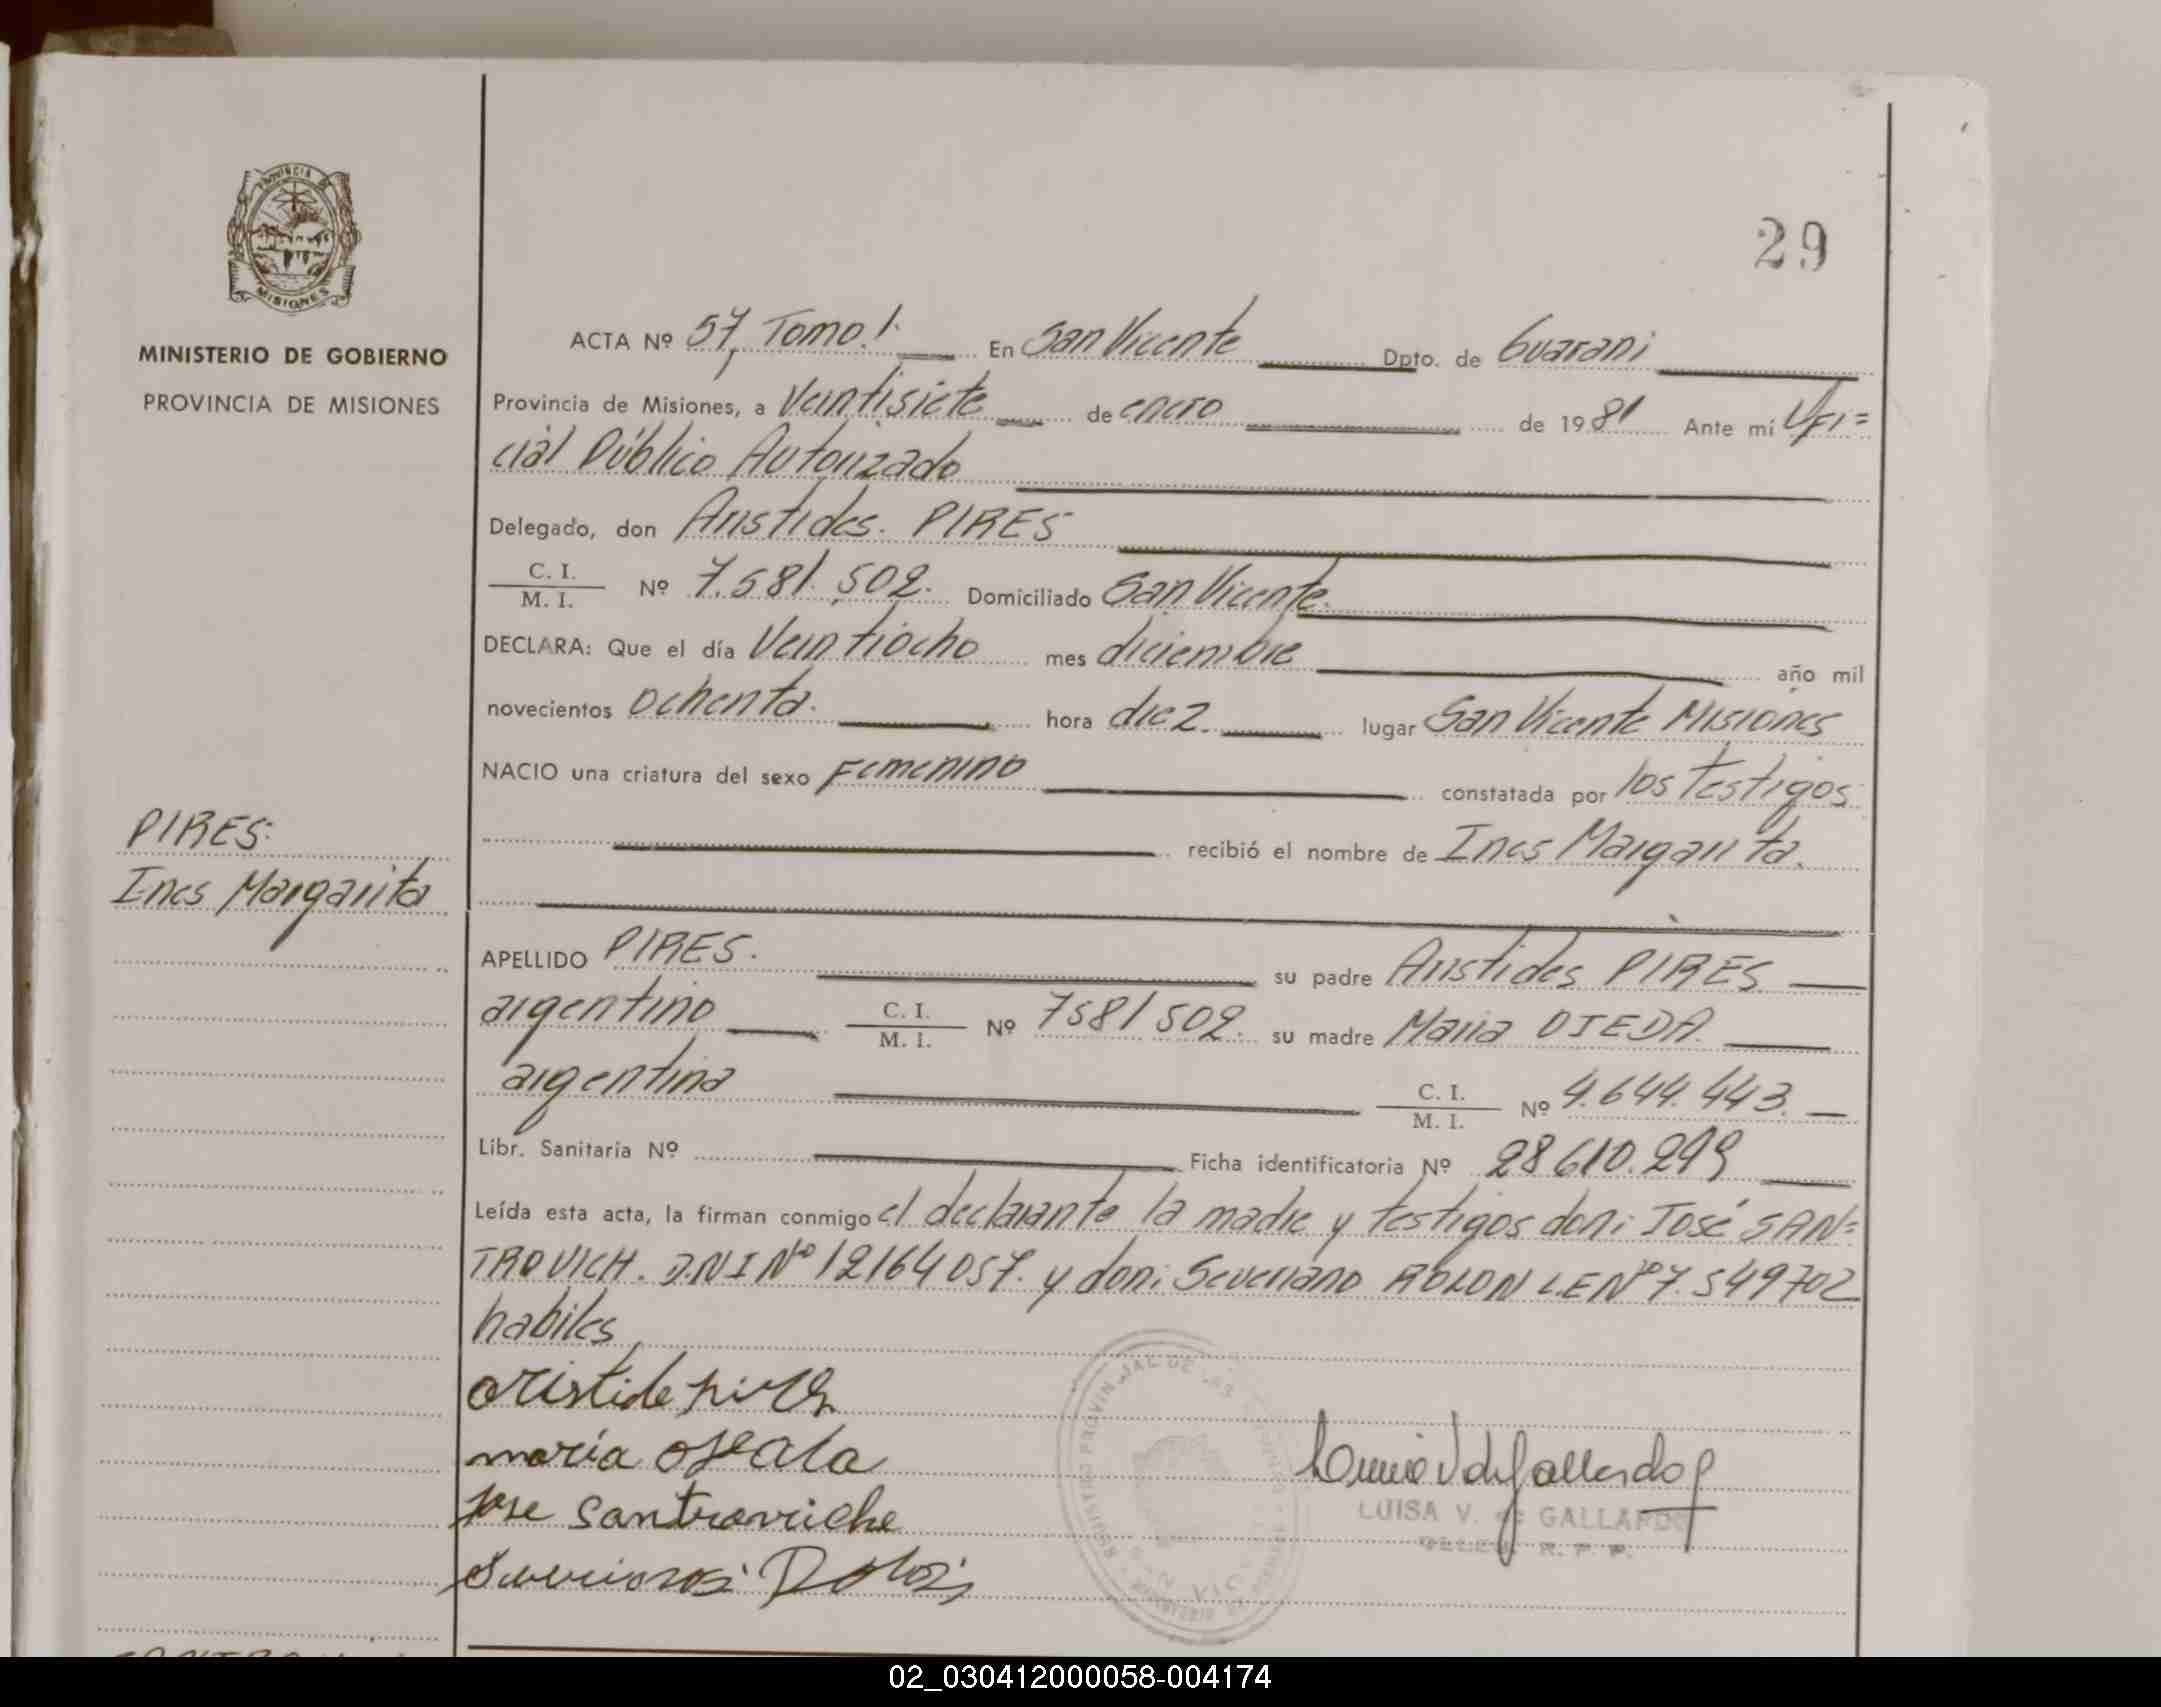 PROVINCIA DE
MISIONES
MINISTERIO DE GOBIERNO
PROVINCIA DE MISIONES
29
ACTA Nº 57, Tomo 1. En San Vicente Dpto. de Guarani
Provincia de Misiones, a Veintisiete de enero de 1981 Ante mí Ofi=
cial Público Autorizado
Delegado, don Aristides. PIRES
C. I.
M. I. Nº 7.581.502. Domiciliado San Vicente.
DECLARA: Que el día Veintiocho mes diciembre año mil
novecientos ochenta. hora diez. lugar San Vicente Misiones
NACIO una criatura del sexo Femenino constatada por los testigos
recibió el nombre de Ines Margarita.
PIRES.
Ines Margarita
APELLIDO PIRES. su padre Aristides PIRES
argentino C. I.
M. I. Nº 7581502. su madre Maria OJEDA.
argentina C. I.
M. I. Nº 4.644.443.
Libr. Sanitaria Nº Ficha identificatoria Nº 28610.299
Leída esta acta, la firman conmigo el declarante la madre y testigos don: José SAN=
TROVICH. D.N I Nº 12164057. y don: Severiano ROLON L.E Nº 7.549702
habiles
aristide pires
maría ojeda
Jose Santroviche
LUISA V. de GALLARDO
02_030412000058-004174